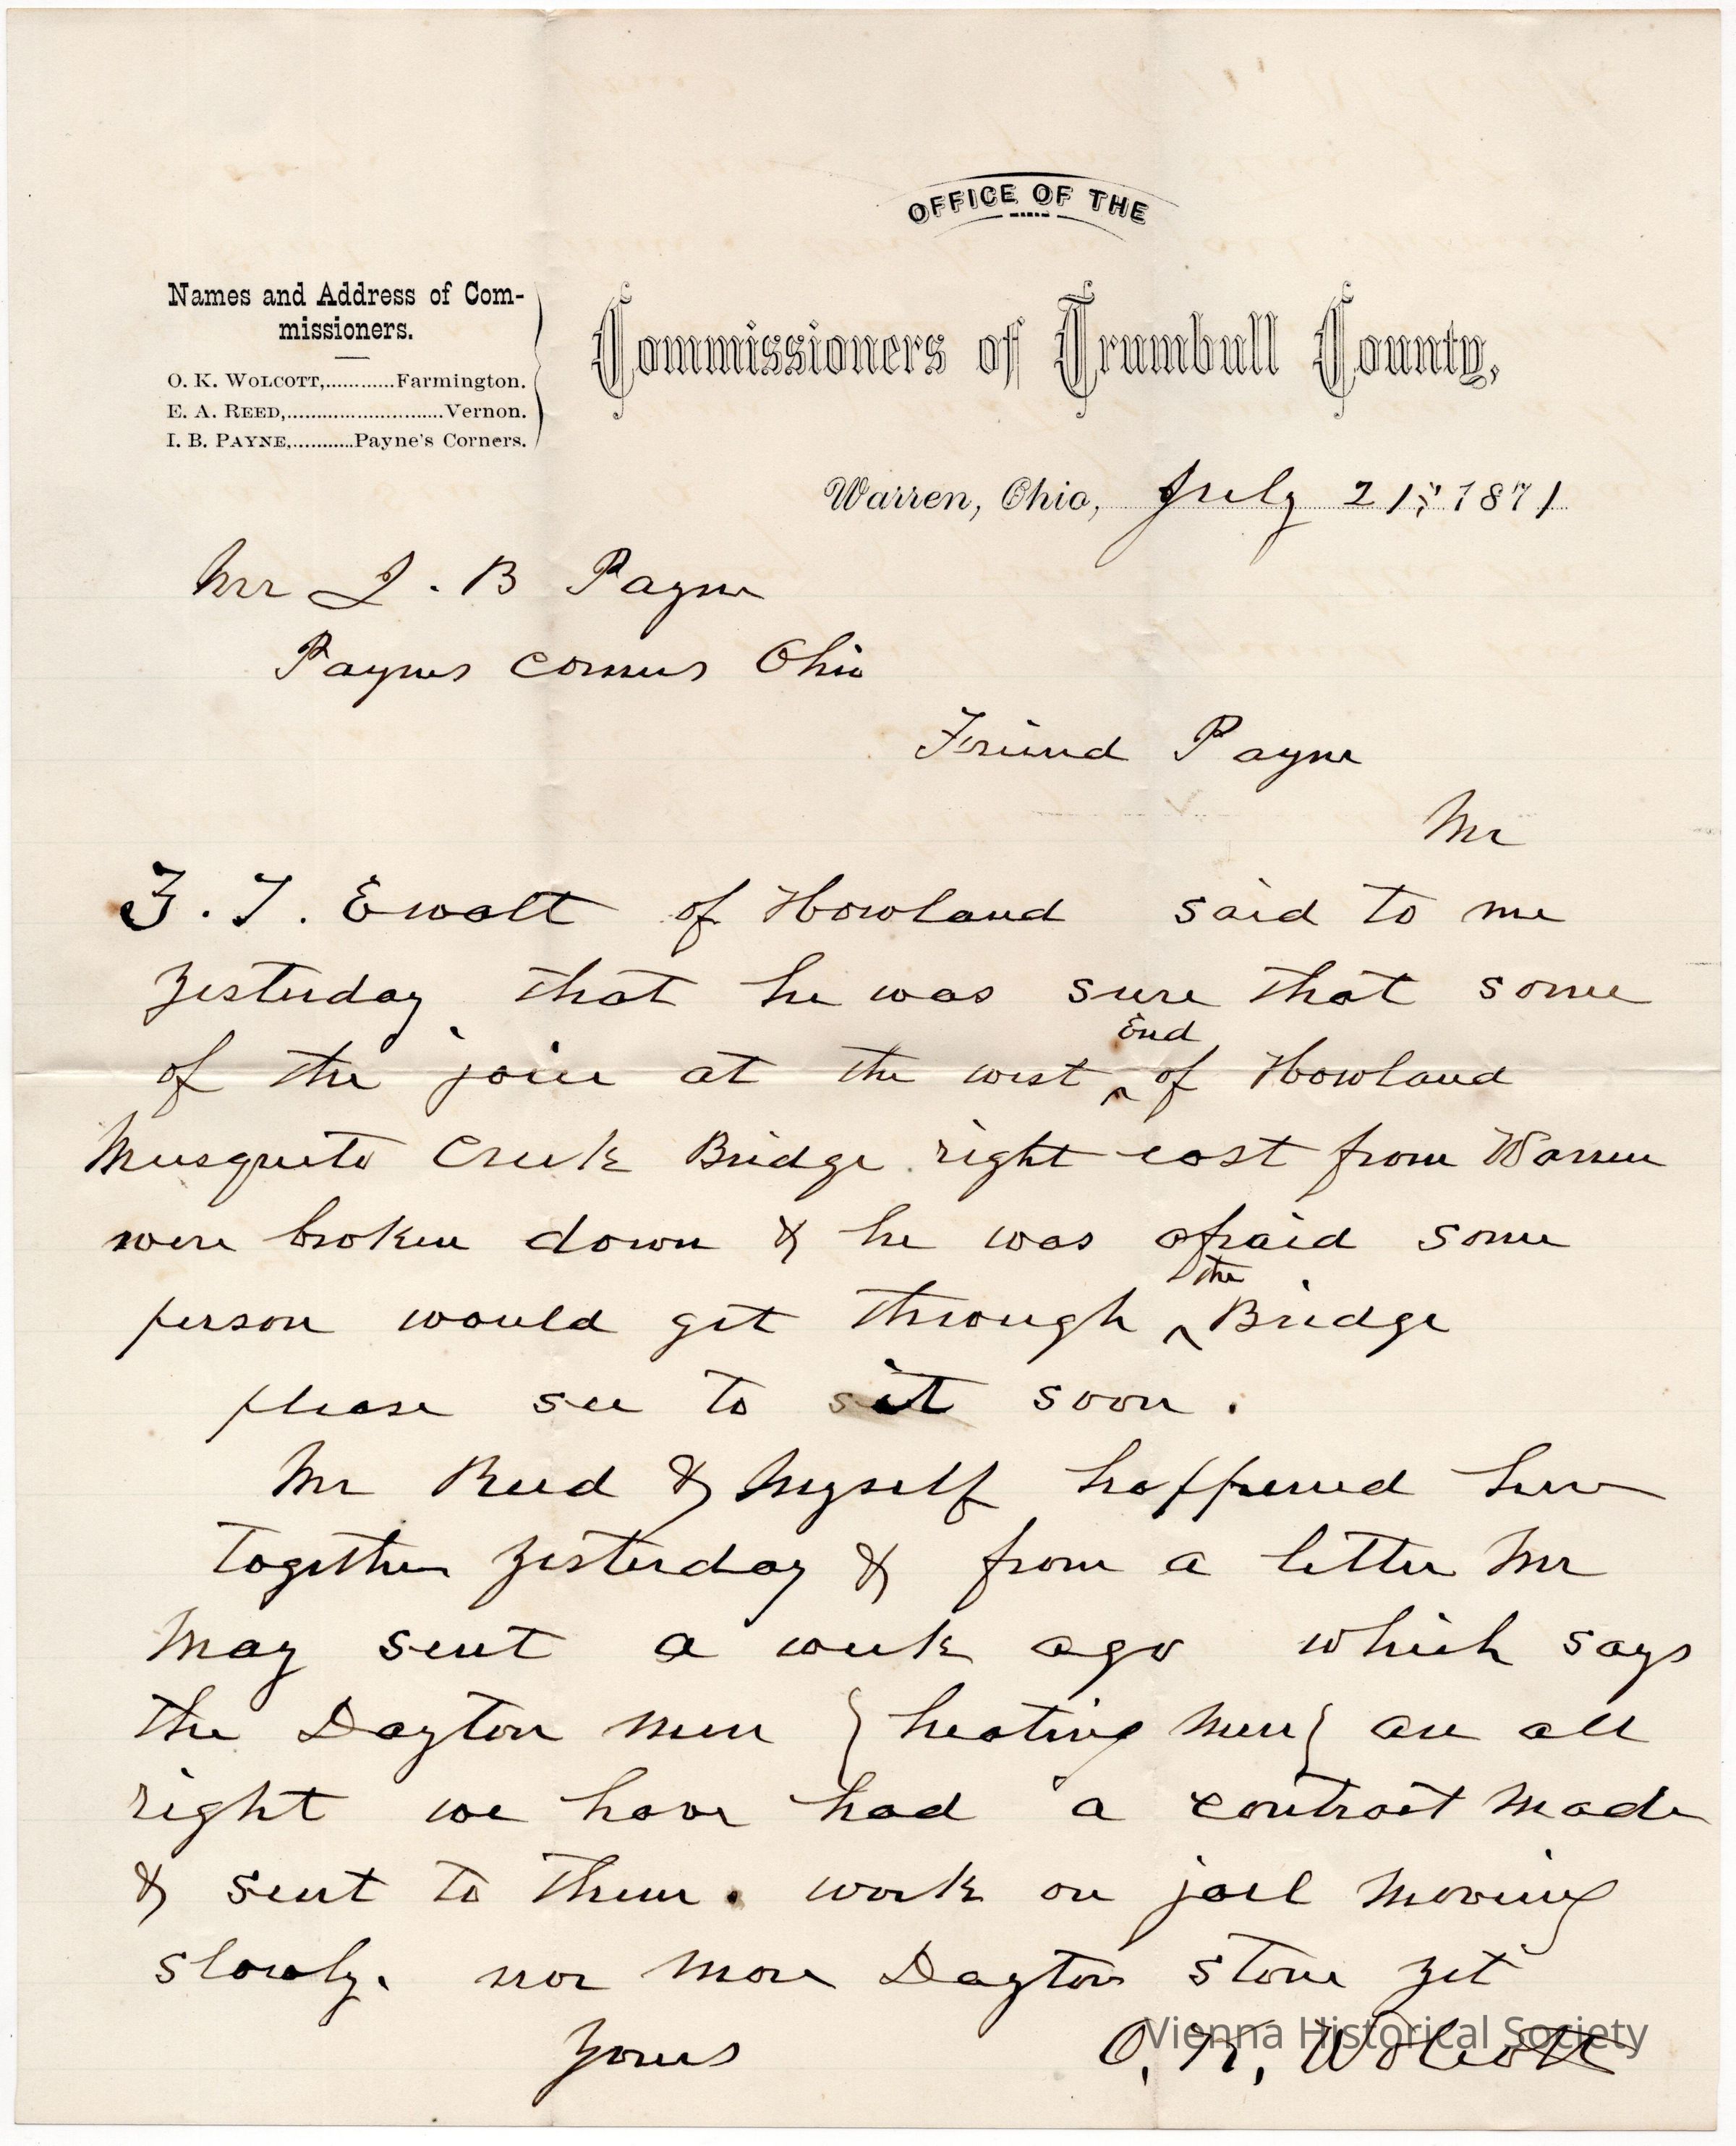 OFFICE OF THE
Names and Address of Com-
missioners.
O. K. WOLCOTT,............Farmington.
E. A. REED,..........................Vernon.
I. B. PAYNE,...........Payne's Corners.
Commissioners of Trumbull County,
Warren, Ohio, July 21st 1871
Mr I. B Payne
Paynes Corners Ohio
Friend Payne
Mr
Z. T. Ewalt of Howland said to me
yesterday that he was sure that some
of the joice at the west End of Howland
Musquito Creek Bridge right east from Warren
were broken down & he was afraid some
person would get through the Bridge
please see to it soon.
Mr Reed & Myself happened here
together yesterday & from a letter Mr
May sent a week ago which says
the Dayton men { heating Men } are all
right we have had a contract Made
& sent to them. work on jail Moving
slowly. nor More Dayton stone yet
Yours O. K. Wolcott
Vienna Historical Society